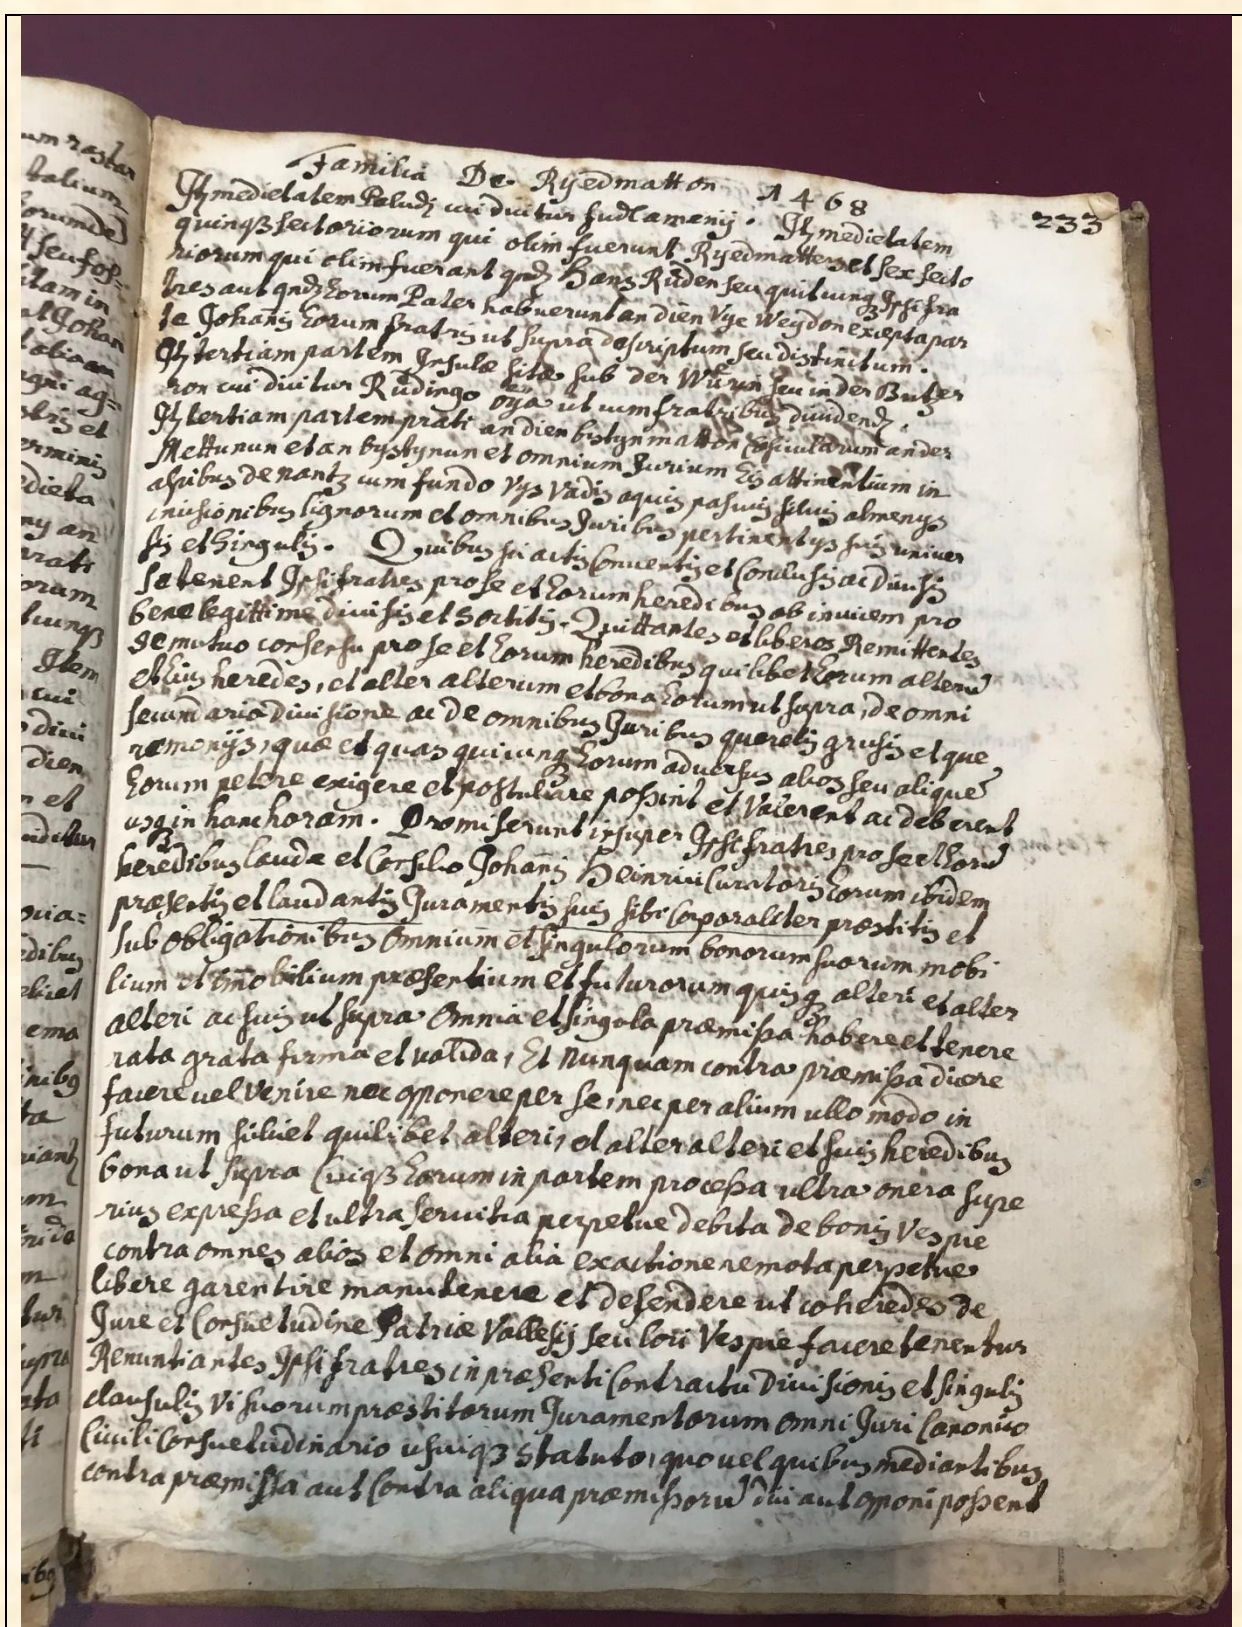 Familia De Ryedmatton 1468
233
Itz medietatem Paludz cui dicitur sudlamanij. Itz medietatem
quinqz sectoriorum qui olim fuerunt Ryedmatters et sex secto
riorum qui olim fuerant qndz Hans Rüden seu quicunqz Ipsi fra
tres aut qndz Eorum Pater habuerunt an dien Vye Weydon excepta par
te Johanis Eorum fratris ut supra descriptum seu distinctum.
Itz tertiam partem Insulæ sitæ sub der Würin seu in der Butzer
ron cui dicitur Rüdingo öya ut cum fratribus dividendz.
Itz tertiam partem prati an dien bystynmatton an der
Mettunun et an bystynun et omnium Jurium Eis attinentium in
alpibus de nantz cum fundo Vys Vadis aquis pascuis silvis almenys
incisionibus lignorum et omnibus Juribus pertinentys suis univer
sis et singulis. Quibus sic actis Conventis et Conclusis ac Divisis
se tenent Ipsi fratres pro se et Eorum heredibus ab invicem pro
bene legittime divisis et sortitis. Quittantes et liberos Remittentes
se mutuo consensu pro se et Eorum heredibus quilibet Eorum alteru
et Eius heredes, et alter alterum et bona Eorum ut supra, de omni
secundaria Divisione ac de omnibus Juribus querelis grusis et que
remonijs, quæ et quas quicunqz Eorum adversus alios seu aliquē
Eorum petere exigere et postulare possint et Valerent ac deberent
usqz in hanc horam. Promiserunt insuper Ipsi fratres pro se et Eorū
heredibus laude et Consilio Johanis Heinrici Curatoris Eorum ibidem
præsentis et laudantis Juramentis suis sibi Corporaliter præstitis et
sub obligationibus Omnium et singulorum bonorum suorum mobi
lium et imobilium præsentium et futurorum quisqz alteri et alter
alteri ac suis ut supra Omnia et singula præmissa habere et tenere
rata grata firma et valida, Et nunquam contra præmissa dicere
facere vel Venire nec oponere per se, nec per alium ullo modo in
futurum silicet quilibet alteri, et alter alteri et suis heredibus
bona ut supra Cuiqz Eorum in partem processa ultra onera supe
rius expressa et ultra servitia perpetue debita de bonis Vespie
contra omnes alios et omni alia exactione remota perpetue
libere garentire manutenere et defendere ut coheredes de
Jure et Consuetudine Patriæ Vallesij seu loci Vespie facere tenentur
Renuntiantes Ipsi fratres in præsenti Contractu Divisionis et singulis
clausulis Vi suorum præstitorum Juramentorum omni Juri Canonico
Civili Consuetudinario usuiqz statuto, quo vel quibus mediantibus
contra præmissa aut Contra aliqua præmissorū dici aut opponi possent